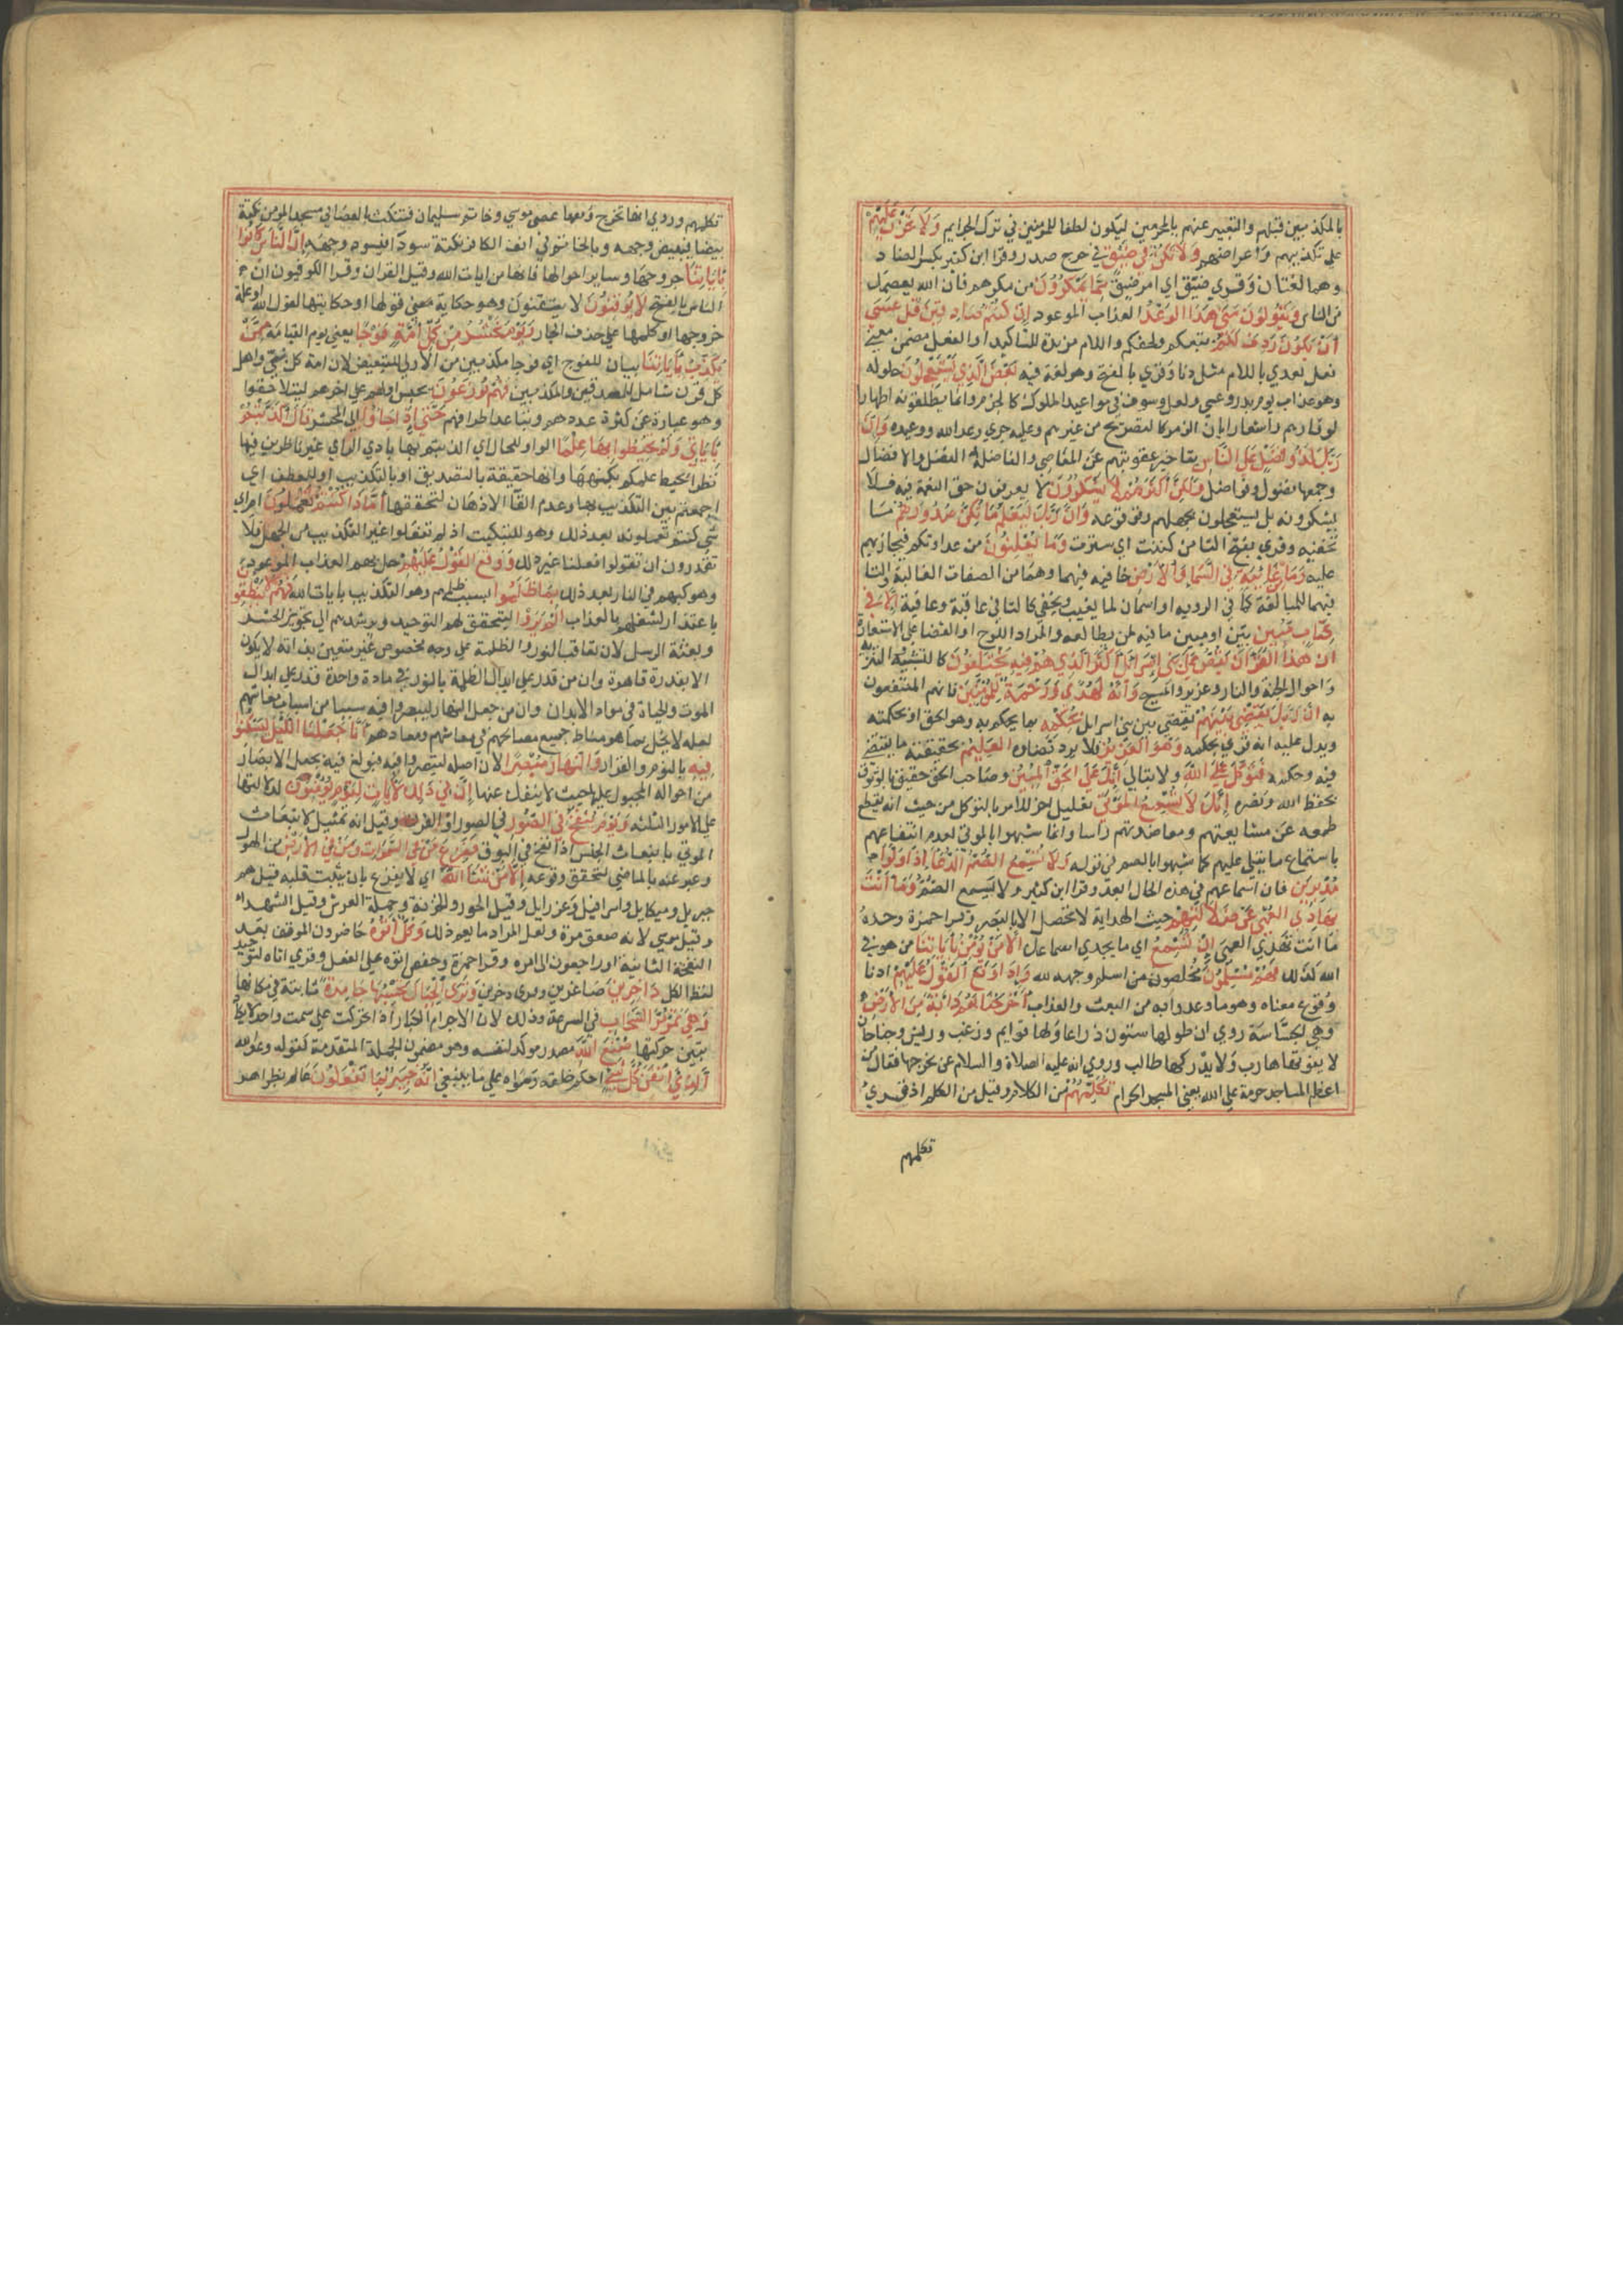 بالمكذبين قبلهم والتعبير عنهم بالمجرمين ليكون لطفا للمؤمنين في ترك الجرايم وَلَا تَحْزَنْ عَلَيْهِمْ
على تكذيبهم واعراضهم وَلَا تَكُنْ فِي ضَيْقٍ في حرج صدر وقرا ابن كثير بكسر الضاد
وهما لغتان وقري ضيّق اي امر ضيق مِمَّا يَمْكُرُونَ من مكرهم فان الله يعصمك
من الناس وَيَقُولُونَ مَتَى هَذَا الوَعْدُ العذاب الموعود اِنْ كُنْتُمْ صَادِقِينَ قُلْ عَسَى
أَنْ يَكُونَ رَدِفَ لَكُمْ تبعكم ولحقكم واللام مزيدة للتاكيد او الفعل مضمن معنى
فعل تعدي باللام مثل دنا وقري بالفتح وهو لغة فيه بَعْضُ الَّذِي تَسْتَعْجِلُونَ حلوله
وهو عذاب يوم بدر وعسى ولعل وسوف في مواعيد الملوك كالجزم وانما يطلقونه اظهارا
لوقارهم واشعارا بان الرمز كالتصريح من غيرهم وعليه جري وعد الله ووعيده وَاِنَّ
رَبَّكَ لَذُو فَضْلٍ عَلَى النَّاسِ بتاخير عقوبتهم عن المعاصي والفاضلة الفضل والافضال
وجمعها فضول وفواضل وَلَكِنَّ أَكْثَرَهُمْ لَا يَشْكُرُونَ لا يعرفون حق النعمة فيه فلا
يشكرونه بل يستعجلون بجهلهم وقوعه وَاِنَّ رَبَّكَ لَيَعْلَمُ مَا تُكِنُّ صُدُورُهُمْ ما
تخفيه وقري بفتح التا من كننت اي سترت وَمَا يُعْلِنُونَ من عداوتكم فيجازيهم
عليه وَمَا مِنْ غَائِبَةٍ فِي السَّمَاءِ وَالْأَرْضِ خافية فيهما وهما من الصفات الغالبة والتا
فيهما للمبالغة كما في الرواية او اسمان لما يغيب ويخفى كالتا في عاقبة وعافية اِلَّا فِي
كِتَابٍ مُبِينٍ بيّن او مبين ما فيه لمن يطالعه والمراد اللوح او القضا على الاستعارة
اِنَّ هَذَا الْقُرْآنَ يَقُصُّ عَلَى بَنِي اِسْرَائِيلَ أَكْثَرَ الَّذِي هُمْ فِيهِ يَخْتَلِفُونَ كالتشبيه والتنزيه
واحوال الجنة والنار وعزير والمسيح وَاِنَّهُ لَهُدًى وَرَحْمَةٌ لِلْمُؤْمِنِينَ فانهم المنتفعون
به اِنَّ رَبَّكَ يَقْضِي بَيْنَهُمْ يقضي بين بني اسرايل بِحُكْمِهِ بما يحكم به وهو الحق او بحكمته
ويدل عليه انه قري بحكمه وَهُوَ الْعَزِيزُ فلا يرد قضاوه الْعَلِيمُ بحقيقة ما يقتضى
فيه وحكمه فَتَوَكَّلْ عَلَى اللَّهِ ولا تبالي اِنَّكَ عَلَى الْحَقِّ الْمُبِينِ وصاحب الحق حقيق بالوثوق
بحفظ الله ونصره اِنَّكَ لَا تُسْمِعُ الْمَوْتَى تعليل اخر للامر بالتوكل من حيث انه يقطع
طمعه عن مشايعتهم ومعاضدتهم راسا وانما شبهوا بالموتى لعدم انتفاعهم
باستماع ما يتلى عليهم كما شبهوا بالصم في قوله وَلَا تُسْمِعُ الصُّمَّ الدُّعَاءَ اِذَا وَلَّوْا
مُدْبِرِينَ فان اسماعهم في هذه الحال ابعد وقرا ابن كثير ولا يسمع الصم وَمَا أَنْتَ
بِهَادِي الْعُمْيِ عَنْ ضَلَالَتِهِمْ حيث الهداية لا تحصل الا بالبصر وقرا حمزة وحده
وما انت تهدي العمي اِنْ تُسْمِعُ اي ما يجدي اسماعك اِلَّا مَنْ يُؤْمِنُ بِآيَاتِنَا من هو في
الله كذلك فَهُمْ مُسْلِمُونَ مخلصون من اسلم وجهه لله وَاِذَا وَقَعَ الْقَوْلُ عَلَيْهِمْ ادنا
وقوع معناه وهو ما وعدوا به من البعث والعذاب أَخْرَجْنَا لَهُمْ دَابَّةً مِنَ الْأَرْضِ
وهي الجساسة روي ان طولها ستون ذراعا ولها قوايم وزغب وريش وجناحان
لا يفوتها هارب ولا يدركها طالب وروي انه عليه الصلاة والسلام سئل عن مخرجها فقال من
اعظم المساجد حرمة على الله يعني المسجد الحرام تُكَلِّمُهُمْ من الكلام وقيل من الكلم اذ قري
تكلمهم
تكلمهم وروي انها تخرج ومعها عصى موسى وخاتم سليمان فتنكت بالعصا في مسجد المومن نكتة
بيضا فيبيض وجهه وبالخاتم في انف الكافر نكتة سودا فيسود وجهه اِنَّ النَّاسَ كَانُوا
بِآيَاتِنَا خروجها وساير احوالها فانها من ايات الله وقيل القران وقرا الكوفيون ان
الناس بالفتح لَا يُوقِنُونَ لا يتيقنون وهو حكاية معنى قولها او حكايتها لقول الله او علة
خروجها او تكلمها على حذف الجار وَيَوْمَ نَحْشُرُ مِنْ كُلِّ أُمَّةٍ فَوْجًا يعني يوم القيامة مِمَّنْ
يُكَذِّبُ بِآيَاتِنَا بيان للفوج اي فوجا مكذبين من الاولى للتبعيض لان امة كل نبي واهل
كل قرن شامل للمصدقين والمكذبين فَهُمْ يُوزَعُونَ يحبس اولهم على اخرهم ليتلاحقوا
وهو عبارة عن كثرة عددهم وتباعد اطرافهم حَتَّى اِذَا جَاءُوا الى المحشر قَالَ أَكَذَّبْتُمْ
بِآيَاتِي وَلَمْ تُحِيطُوا بِهَا عِلْمًا الواو للحال اي اكذبتم بها بادي الراي غير ناظرين فيها
نظرا يحيط علمكم بكنهها وانها حقيقة بالتصديق او بالتكذيب او للعطف اي
اجمعتم بين التكذيب بها وعدم القا الاذهان لتحققها أَمَّاذَا كُنْتُمْ تَعْمَلُونَ ام اي
شي كنتم تعملونه بعد ذلك وهو للتبكيت اذ لم تفعلوا غير التكذيب من الجهل فلا
تقدرون ان تقولوا فعلنا غير ذلك وَوَقَعَ الْقَوْلُ عَلَيْهِمْ حل بهم العذاب الموعود
وهو كبهم في النار بعد ذلك بِمَا ظَلَمُوا بسبب ظلمهم وهو التكذيب بايات الله فَهُمْ لَا يَنْطِقُونَ
باعتذار لشغلهم بالعذاب أَلَمْ يَرَوْا ليتحقق لهم التوحيد ويرشدهم الى تجويز الحشر
وبعثة الرسل لان تعاقب النور والظلمة على وجه مخصوص غير متعين بذاته لا يكون
الا بقدرة قاهرة وان من قدر على ابدال الظلمة بالنور في مادة واحدة قدر على ابدال
الموت والحياة في مواد الابدان وان من جعل النهار ليبصروا فيه سببا من اسباب معاشهم
لعله لا يخل بما هو مناط جميع مصالحهم في معاشهم ومعادهم أَنَّا جَعَلْنَا اللَّيْلَ لِيَسْكُنُوا
فِيهِ بالنوم والقرار وَالنَّهَارَ مُبْصِرًا لان اصله ليبصروا فيه فبولغ فيه بجعل الابصار
من احواله المجبول عليها بحيث لا ينفك عنها اِنَّ فِي ذَلِكَ لَآيَاتٍ لِقَوْمٍ يُؤْمِنُونَ لدلالتها
على الامور الثلثة وَيَوْمَ يُنْفَخُ فِي الصُّورِ في الصور او القرن وقيل انه تمثيل لانبعاث
الموتى بانبعاث الجيش اذا نفخ في البوق فَفَزِعَ مَنْ فِي السَّمَوَاتِ وَمَنْ فِي الْأَرْضِ من الهول
وعبر عنه بالماضي لتحقق وقوعه اِلَّا مَنْ شَاءَ اللَّهُ اي لا يفزع بان يثبت قلبه قيل هم
جبريل وميكايل واسرافيل وعزرايل وقيل الحور والخزنة وحملة العرش وقيل الشهداء
وقيل موسى لانه صعق مرة ولعل المراد ما يعم ذلك وَكُلٌّ أَتَوْهُ حاضرون الموقف بعد
النفخة الثانية او راجعون الى امره وقرا حمزة وحفص اتوه على الفعل وقري اتاه لتوحيد
لفظ الكل دَاخِرِينَ صاغرين وقري دخرين وَتَرَى الْجِبَالَ تَحْسَبُهَا جَامِدَةً ثابتة في مكانها
وَهِيَ تَمُرُّ مَرَّ السَّحَابِ في السرعة وذلك لان الاجرام الكبار اذا تحركت على سمت واحد لا يكاد
يتبين حركتها صُنْعَ اللَّهِ مصدر موكد لنفسه وهو مضمون الجملة المتقدمة كقوله وعد الله
الَّذِي أَتْقَنَ كُلَّ شَيْءٍ احكم خلقه وسواه على ما ينبغي اِنَّهُ خَبِيرٌ بِمَا تَفْعَلُونَ عالم بظواهر